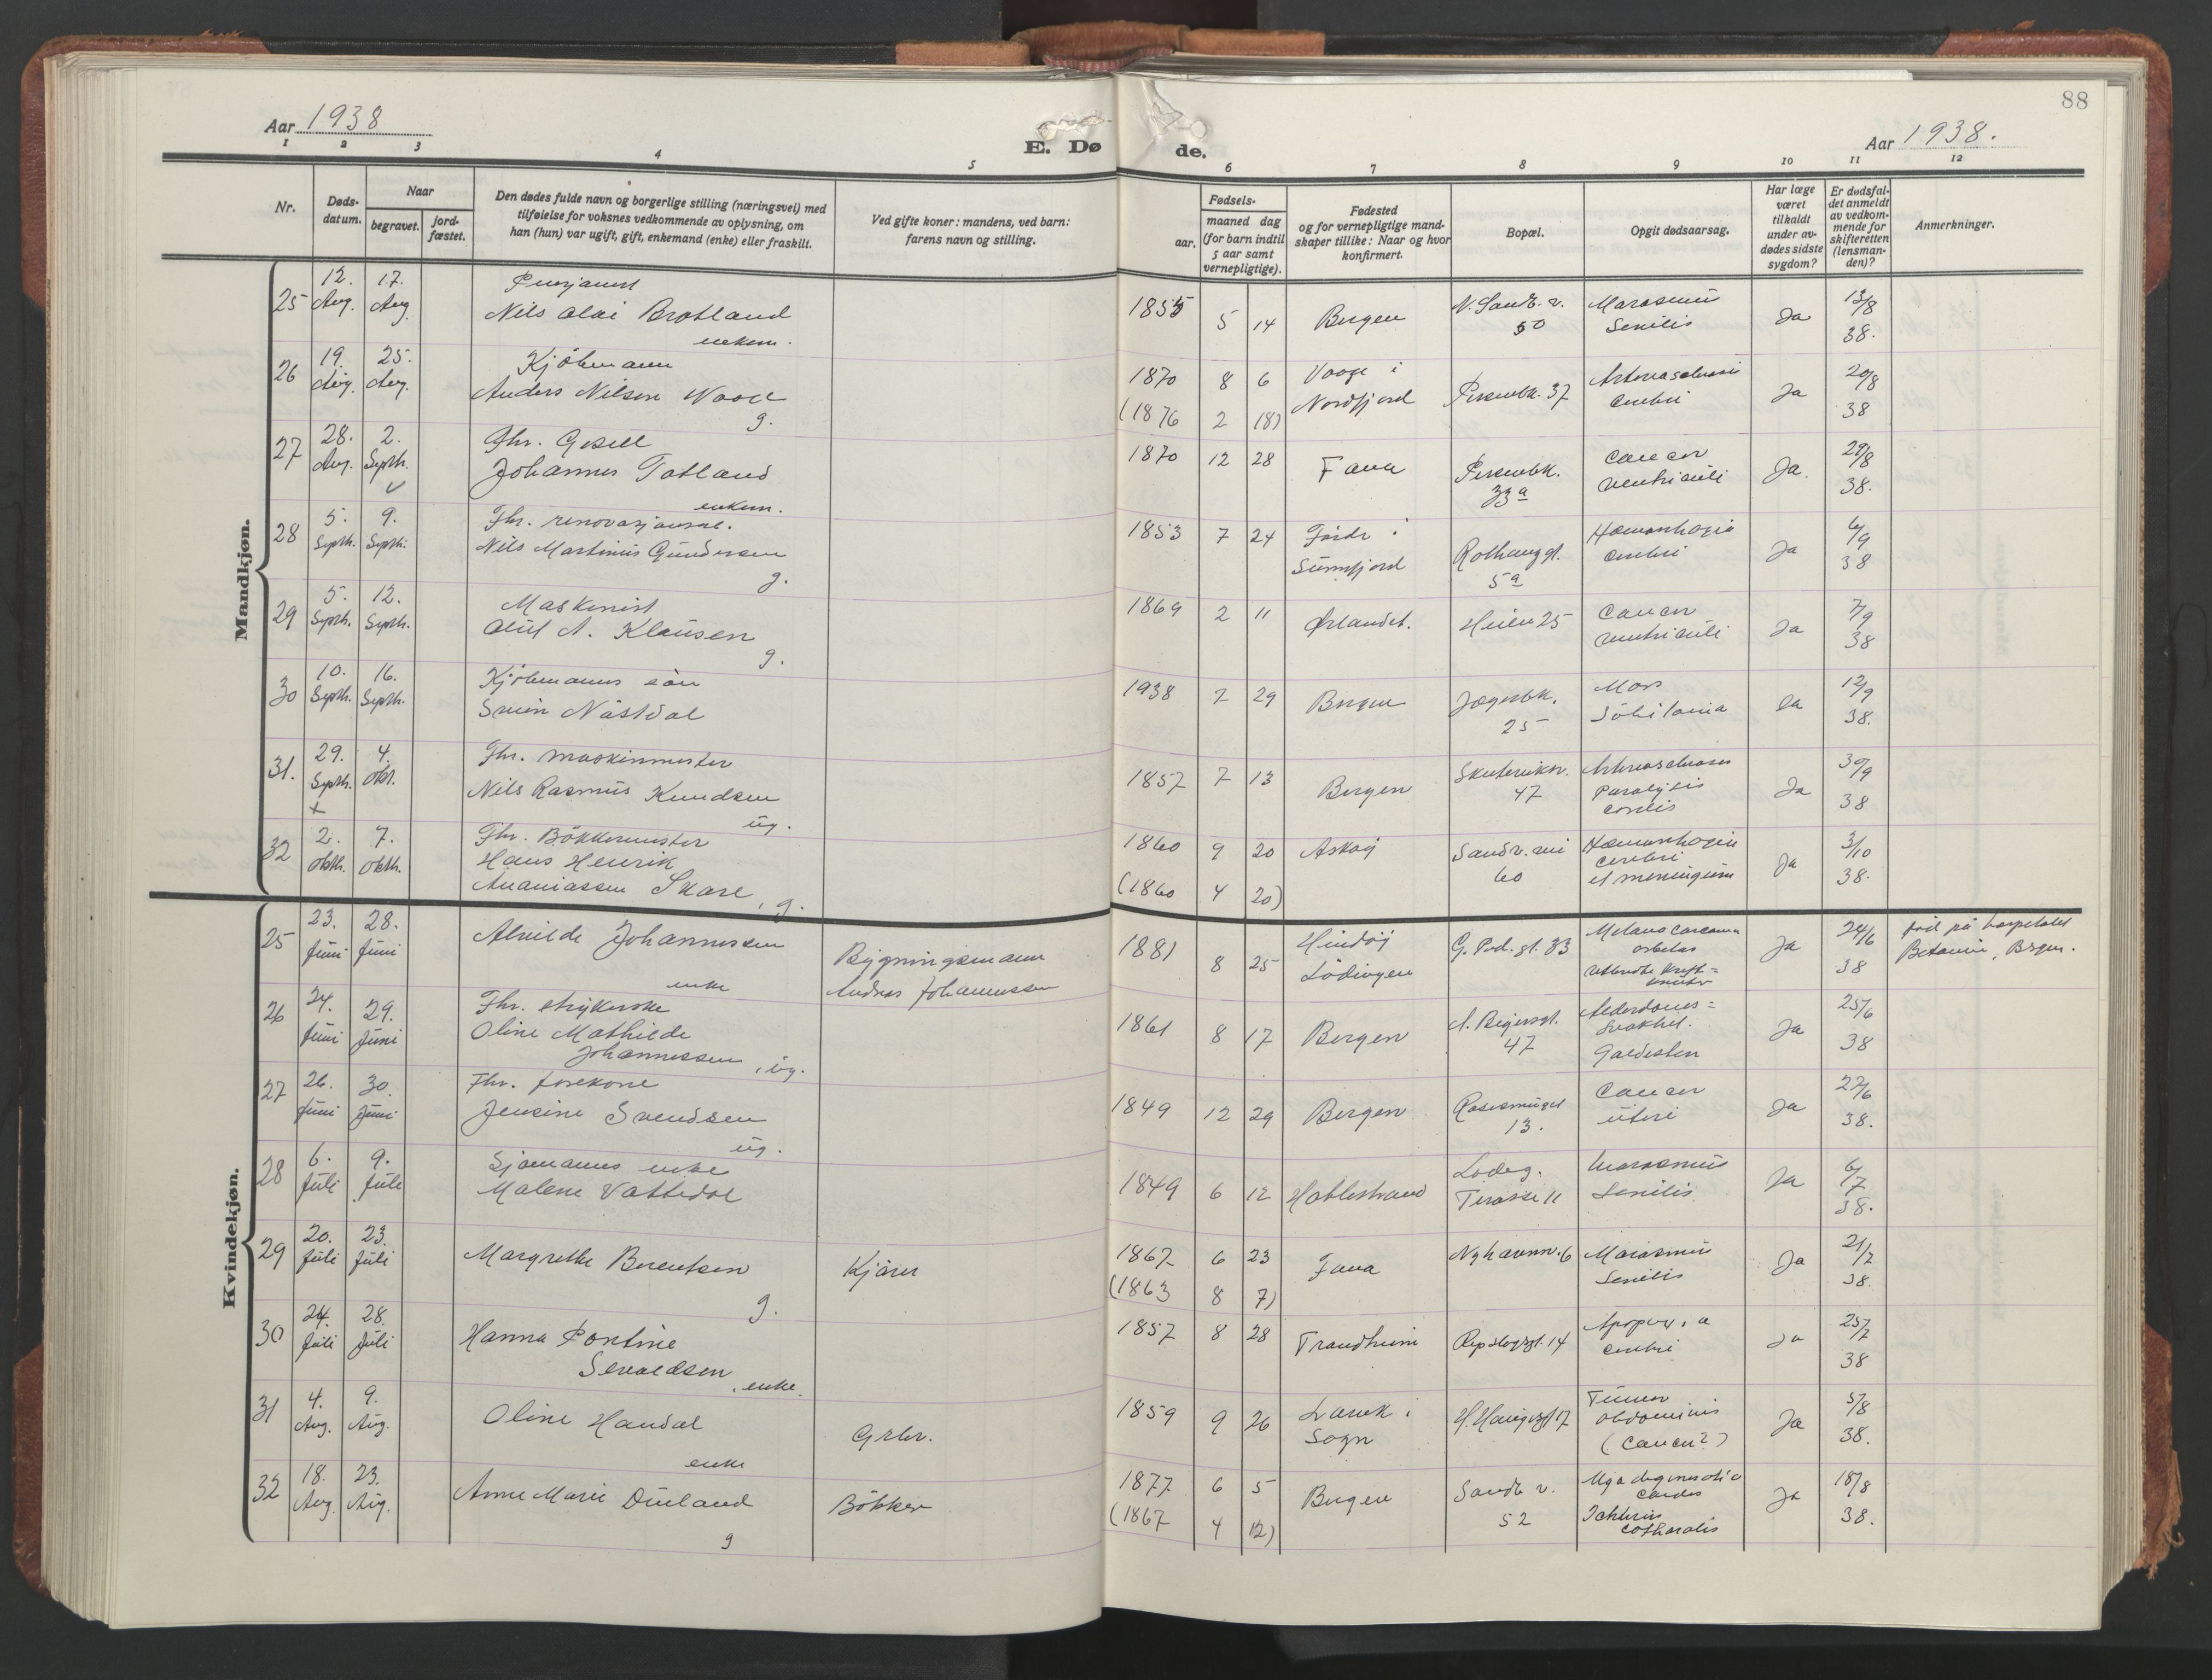 88
Aar 1938
E. Dø de.
Aar 1938.
1 2 3 4 5 6 7 8 9 10 11 12
Nr.
Døds-datum.
Naar
begravet.
jord-fæstet.
Den dødes fulde navn og borgerlige stilling (næringsvei) med
tilføielse for voksnes vedkommende av oplysning, om
han (hun) var ugift, gift, enkemand (enke) eller fraskilt.
Ved gifte koner: mandens, ved barn:
farens navn og stilling.
Fødsels-
aar.
maaned dag
(for barn indtil
5 aar samt
vernepligtige).
Fødested
og for vernepligtige mand-
skaper tillike: Naar og hvor
konfirmert.
Bopæl.
Opgit dødsaarsag.
Har læge
været
tilkaldt
under av-
dødes sidste
sygdom?
Er dødsfal-
det anmeldt
av vedkom-
mende for
skifteretten
(lensman-
den)?
Anmerkninger.
Mandkjøn.
25 12. Aug. 17. Aug. Nils Olai Brotland enkem. 1855 5 14 Bergen 50 Marasmus Senilis Ja 13/8 38.
26 19. Aug. 25. Aug. Kjøbmann Anders Nilsen g. 1870 8 6 (1876 2 18) Nordfjord 37 cerebri Ja 20/8 38
27 28. Aug. 2. Septb. Fhv. Gesell Johannes Totland enkem. 1870 12 28 Fana 33a Cancer ventriculi Ja. 29/8 38.
28 5. Septb. 9. Septb. Fhv. Nils Martinus Gundersen g. 1853 7 24 Førde i Sunnfjord 5a Hæmorrhagia cerebri Ja 6/9 38
29 5. Septb. 12. Septb. Maskinist Oluf A. Klausen g. 1869 2 11 Ørlandet. Heien 25 Cancer ventriculi Ja 7/9 38
30 10. Septb. 16. Septb. Kjøbmanns søn Svein Nåstdal 1938 7 29 Bergen Jægerbk. 25 Mors Subitania Ja 12/9 38.
31. 29. Septb. 4. Okt. Fhv. maskinmester Nils Rasmus Knudsen ug. 1857 7 13 Bergen Skuteviksv. 47 Arteriosclerosis Paralysis cordis Ja 30/9 38
32 2. Oktb. 7. Oktb. Fhv. Bökkermester Hans Henrik Ananiassen Skare, g. 1860 9 20 (1860 4 20) Askøy Sandv.vei 60 Hæmorrhagia cerebri et meningium Ja 3/10 38.
Kvindekjøn.
25 23. Juni 28. Juni Alvilde Johannessen enke Bygningsmann Andreas Johannessen 1881 8 25 Hindøy Lödingen 33 Ja 24/6 38 på hospitalet Betanien, Bergen.
26 24. Juni 29. Juni Fhv. strykerske Oline Mathilde Johannessen, ug. 1861 8 17 Bergen 47 Alderdoms= svakhet. Galdesten Ja 25/6 38
27 26. Juni 30. Juni Fhv. Jensine Svendsen ug. 1849 12 29 Bergen 13. Cancer uteri Ja 27/6 38.
28 6. Juli 9. Juli Sjømanns enke Malene Vattedal 1849 6 12 Hatlestrand Ladeg. Terasse 11 Marasmus Senilis Ja 6/7 38.
29 20. Juli 23. Juli Margrethe Berentsen g. Kjörer 1867 6 23 (1863 8 7) Fana Nyhavnv. 6 Marasmus Senilis Ja 21/7 38.
30 24. Juli 28. Juli Hanna Pontine Sevaldsen, enke. 1857 8 28 Trondheim Repslagergt. 14 cerebri Ja 25/7 38
31 4. Aug. 9. Aug. Oline Haudal enke 1859 9 26 Sogn 17 Tumor abdominis (Cancer?) Ja 5/8 38.
32 18. Aug. 23. Aug. Anne Marie Duland g Bökker 1877 6 5 (1867 4 12) Bergen Sandv. v. 52 cordis catharalis Ja 18/8 38.